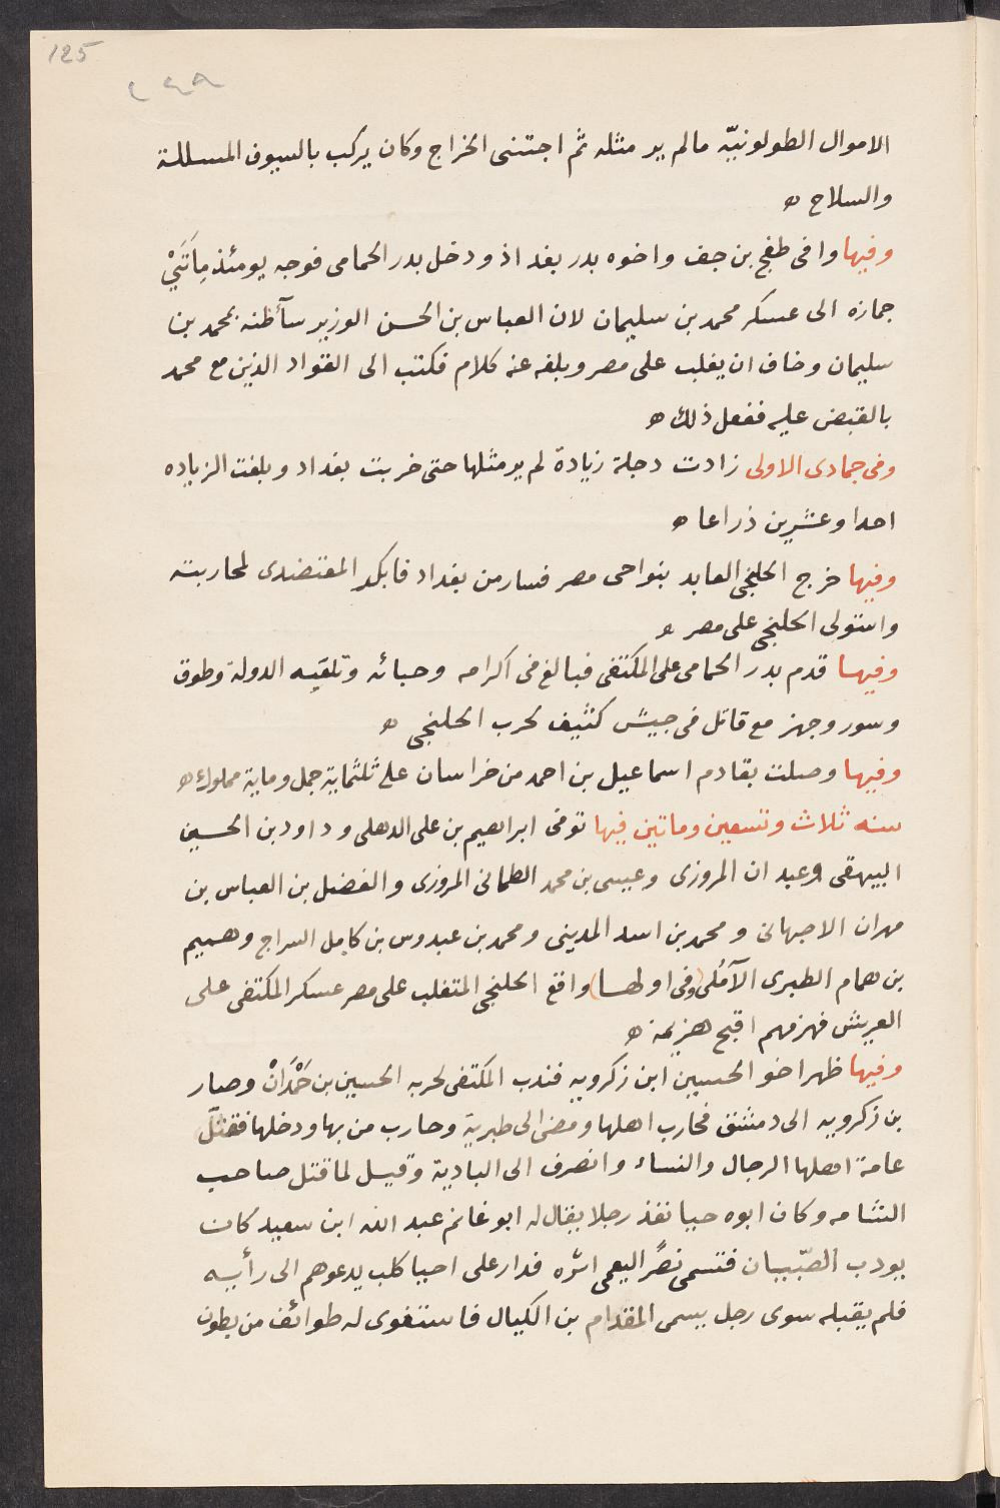 125
٢٤٨
الاموال الطولونيّه مالم ير مثله ثم اجتنى الخراج وكان يركب بالسيوف المسللة
والسلاح ه
وفيها وافى طغج بن جف واخوه بدر بغداذ ودخل بدر الحمامى فوجه يومئذ مِاَتَىْ
جمازه الى عسكر محمد بن سليمان لان العباس بن الحسن الوزير سآ ظنه بمحمد بن
سليمان وخاف ان يغلب على مصر وبلغه عنه كلام فكتب الى القواد الذين مع محمد
بالقبض عليه ففعل ذلك ه
وفى جمادى الاولى زادت دجلة زيادة لم ير مثلها حتى خربت بغداد وبلغت الزياده
احدا وعشرين ذراعا ه
وفيها خرج الخلنجى العابد بنواحى مصر فسار من بغداد فابكد المعتضدى لمحاربته
واستولى الخلنجى على مصر ه
وفيها قدم بدر الحمامى على المكتفى فبالغ فى اكرامه وحبائه وتلقيه الدولة وطوق
وسور وجهز مع فاتل فى جيش كثيف لحرب الخلنجى ه
وفيها وصلت بقادم اسماعيل بن احمد من خراسان على ثلثماية جمل وماية مملوك ه
سنه ثلاث وتسعين وماتين فيها توفى ابراهيم بن على الدهلى وداود بن الحسين
البيهقى وعبدان المروزى وعيسى بن محمد الطمانى المروزى والفضل بن العباس بن
مهران الاصبهانى ومحمد بن اسد المدينى ومحمد بن عبدوس بن كامل السراج وهميم
بن همام الطبرى الآمُلى (وفى اولها) واقع الخلنجى المتغلب على مصر عسكر المكتفى على
العريش فهزمهم اقبح هزيمة ه
وفيها ظهر اخو الحسين ابن زكرويه فندب المكتفى لحربه الحسين بن حَمْدَانْ وصار
بن زكرويه الى دمشق فحارب اهلها ومضى الى طبرية وحارب من بها ودخلها فقتل
عامة اهلها الرجال والنساء وانصرف الى البادية وقيل لما قتل صاحب
الشامه وكان ابوه حيا نفذ رجلا يقال له ابو غانم عبد الله ابن سعيد كان
يودب الصّبيان فتسمى نصرًا ليعمى اثره فدار على احيا كلب يدعوهم الى رأييه
فلم يقبله سوى رجل يسمى المقدام بن الكيال فاستغوى له طوائف من بطون